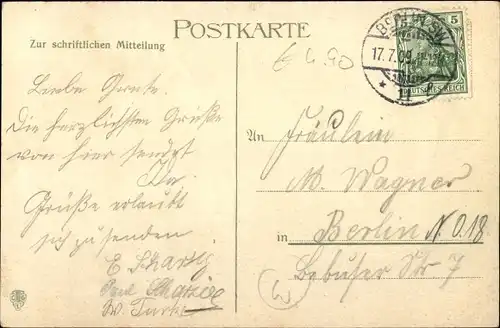 POSTKARTE
Zur schriftlichen Mitteilung
€ 4.90
BERLIN SW
17.7.09
* 11
5
DEUTSCHES REICH
Liebe Grete.
Die herzlichsten Grüße
von hier sendet
Grüße erlaubt
sich zu senden
E
Paul
W.
An Fräulein
M. Wagner
in Berlin N.O.18.
Lebuser Str. 7